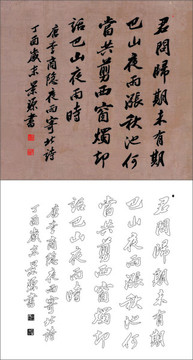 君問歸期未有期
巴山夜雨漲秋池何
當共剪西窗燭却
話巴山夜雨時
唐李商隱夜雨寄北詩
丁酉歲末景書
君問歸期未有期
巴山夜雨漲秋池何
當共剪西窗燭却
話巴山夜雨時
唐李商隱夜雨寄北詩
丁酉歲末景書